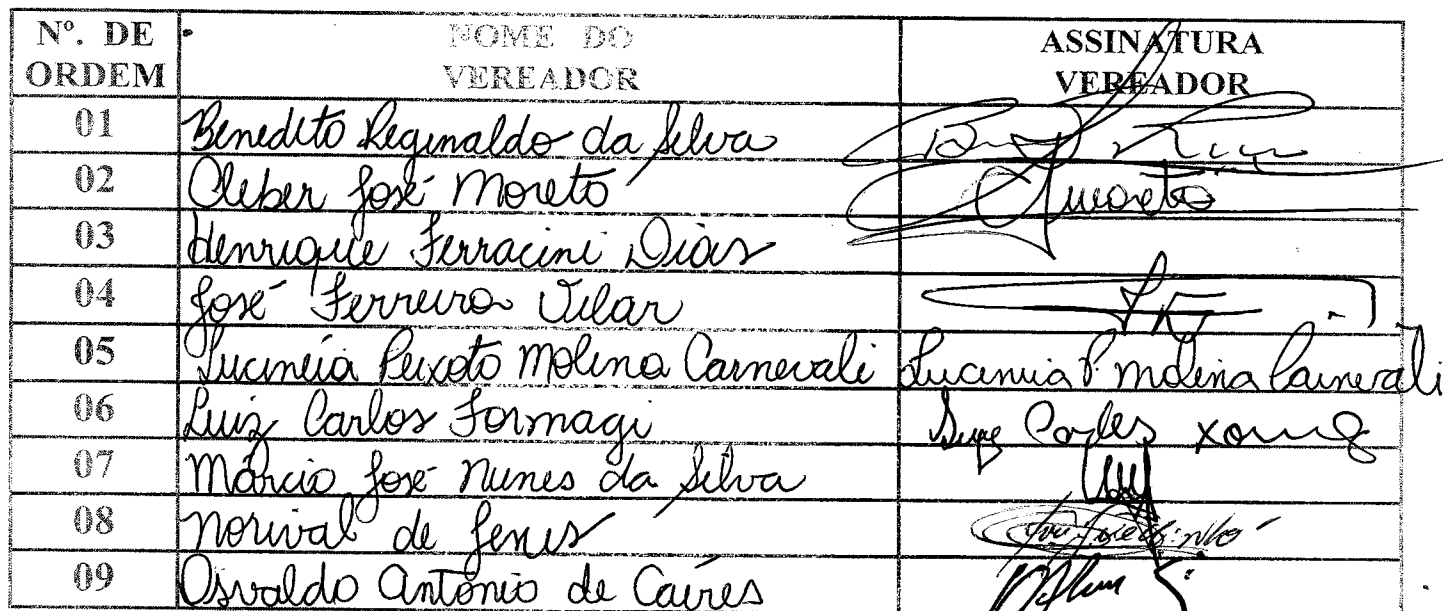 Nº. DE ORDEM NOME DO VEREADOR ASSINATURA VEREADOR
01 Benedito Reginaldo da Silva
02 Cleber José Moreto Moreto
03 Henrique Ferracini Dias
04 José Ferreira Vilar
05 Lucinéia Peixoto Molina Carnevali Lucineia P. Molina Carnevali
06 Luiz Carlos Formagi Luiz Carlos
07 Márcio José Nunes da Silva
08 Norival de Jesus
09 Osvaldo Antônio de Caires